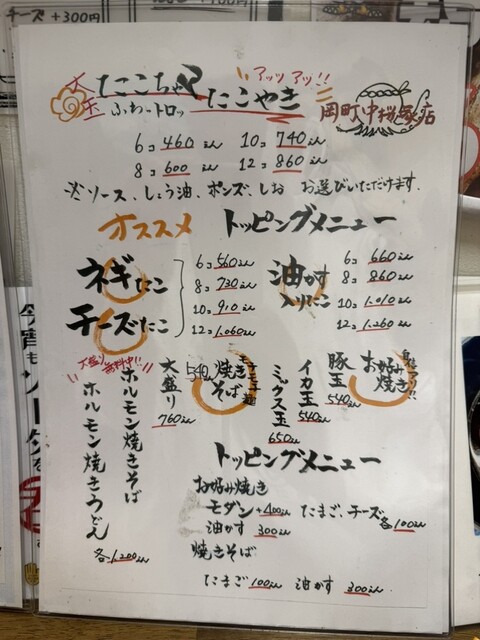 チーズ +300円
大玉 たこちゃん たこやき アッツアッ!!
ふわ〜トロッ
岡町 中桜塚店
6コ 460えん 10コ 740えん
8コ 600えん 12コ 860えん
※ソース、しょう油、ポンズ、しお お選びいただけます。
オススメ トッピングメニュー
ネギたこ
チーズたこ
6コ 560えん
8コ 730えん
10コ 910えん
12コ 1,060えん
油かす
入りたこ
6コ 660えん
8コ 860えん
10コ 1,010えん
12コ 1,260えん
お好み焼き
豚玉 540えん
イカ玉 540えん
ミックス玉 650えん
モチモチ麺
焼きそば 540えん
大盛り 760えん
大盛り無料中!!
ホルモン焼きそば
ホルモン焼きうどん
各1,200えん
トッピングメニュー
お好み焼き
モダン +400えん たまご、チーズ各100えん
油かす 300えん
焼きそば
たまご 100えん 油かす 300えん
今宵も